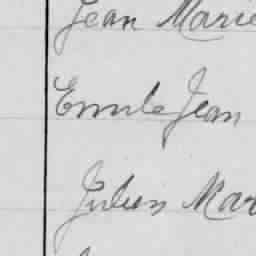 Jean Marie
Emile Jean
Julien Mar